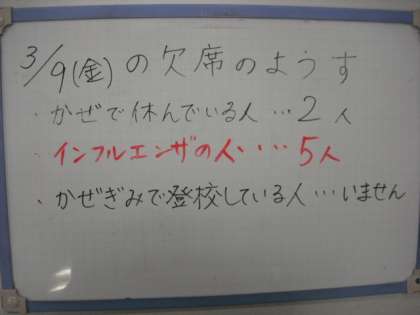 3/9(金)の欠席のようす
・かぜで休んでいる人…2人
・インフルエンザの人・・・5人
・かぜぎみで登校している人…いません